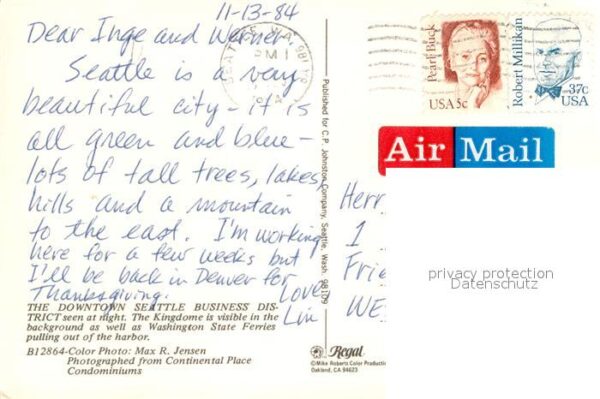 11-13-84
Dear Inge and Werner,
Seattle is a very
beautiful city - it is
all green and blue -
lots of tall trees, lakes,
hills and a mountain
to the east. I'm working
here for a few weeks but
I'll be back in Denver for
Thanksgiving.
Love,
Lin
THE DOWNTOWN SEATTLE BUSINESS DIS-
TRICT seen at night. The Kingdome is visible in the
background as well as Washington State Ferries
pulling out of the harbor.
B12864-Color Photo: Max R. Jensen
Photographed from Continental Place
Condominiums
Published for C.P. Johnston Company, Seattle, Wash. 98109
SEATTLE, WA
PM
Pearl Buck
USA 5c
Robert Millikan
37c
USA
Air Mail
Herr
1
Frie
WE
privacy protection
Datenschutz
Regal
©Mike Roberts Color Productio
Oakland, CA 94623